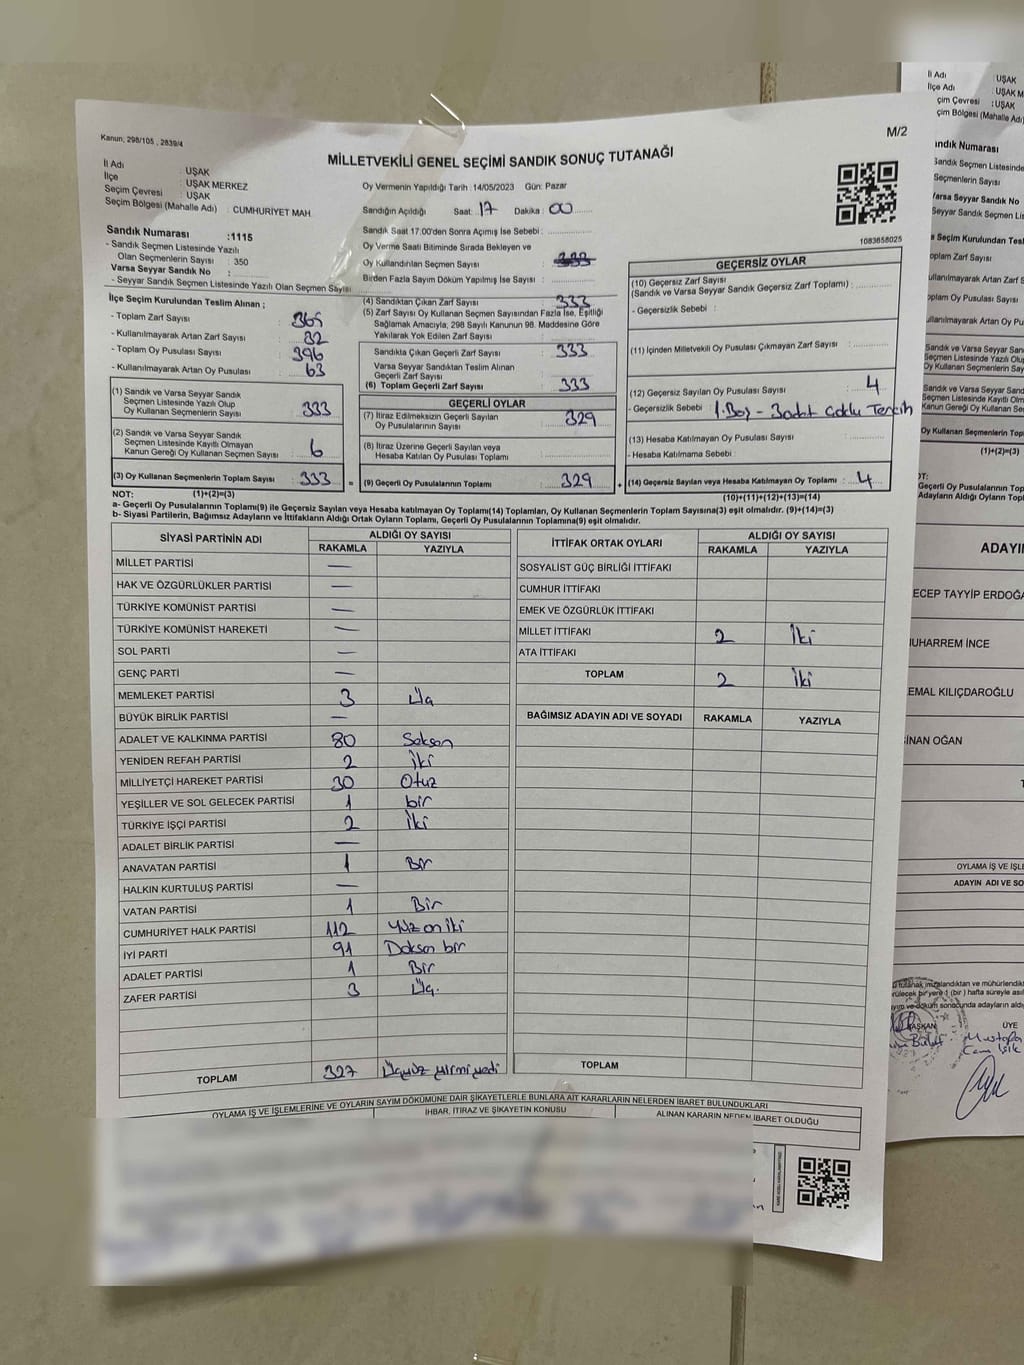 Kanun, 298/105 , 2839/4
M/2
MİLLETVEKİLİ GENEL SEÇİMİ SANDIK SONUÇ TUTANAĞI
İl Adı : UŞAK
İlçe : UŞAK MERKEZ
Seçim Çevresi : UŞAK
Seçim Bölgesi (Mahalle Adı) : CUMHURİYET MAH
Oy Vermenin Yapıldığı Tarih : 14/05/2023 Gün: Pazar
Sandığın Açıldığı Saat: 17 Dakika : 00
Sandık Saat 17:00'den Sonra Açımış İse Sebebi :
Oy Verme Saati Bitiminde Sırada Bekleyen ve
Oy Kullandırılan Seçmen Sayısı
Birden Fazla Sayım Döküm Yapılmış İse Sayısı :
1083658025
Sandık Numarası :1115
- Sandık Seçmen Listesinde Yazılı
Olan Seçmenlerin Sayısı : 350
Varsa Seyyar Sandık No :
- Seyyar Sandık Seçmen Listesinde Yazılı Olan Seçmen Sayısı
İlçe Seçim Kurulundan Teslim Alınan ;
- Toplam Zarf Sayısı : 365
- Kullanılmayarak Artan Zarf Sayısı : 32
- Toplam Oy Pusulası Sayısı : 396
- Kullanılmayarak Artan Oy Pusulası : 63
(1) Sandık ve Varsa Seyyar Sandık
Seçmen Listesinde Yazılı Olup
Oy Kullanan Seçmenlerin Sayısı : 333
(2) Sandık ve Varsa Seyyar Sandık
Seçmen Listesinde Kayıtlı Olmayan
Kanun Gereği Oy Kullanan Seçmen Sayısı : 6
(3) Oy Kullanan Seçmenlerin Toplam Sayısı : 333
(4) Sandıktan Çıkan Zarf Sayısı : 333
(5) Zarf Sayısı Oy Kullanan Seçmen Sayısından Fazla İse, Eşitliği
Sağlamak Amacıyla, 298 Sayılı Kanunun 98. Maddesine Göre
Yakılarak Yok Edilen Zarf Sayısı :
Sandıkta Çıkan Geçerli Zarf Sayısı : 333
Varsa Seyyar Sandıktan Teslim Alınan
Geçerli Zarf Sayısı
(6) Toplam Geçerli Zarf Sayısı : 333
GEÇERLİ OYLAR
(7) İtiraz Edilmeksizin Geçerli Sayılan
Oy Pusulalarının Sayısı : 329
(8) İtiraz Üzerine Geçerli Sayılan veya
Hesaba Katılan Oy Pusulası Toplamı :
= (9) Geçerli Oy Pusulalarının Toplamı : 329
GEÇERSİZ OYLAR
(10) Geçersiz Zarf Sayısı
(Sandık ve Varsa Seyyar Sandık Geçersiz Zarf Toplamı) :
- Geçersizlik Sebebi :
(11) İçinden Milletvekili Oy Pusulası Çıkmayan Zarf Sayısı :
(12) Geçersiz Sayılan Oy Pusulası Sayısı : 4
- Geçersizlik Sebebi : 1.Boş - 3adat Çoklu Tercih
(13) Hesaba Katılmayan Oy Pusulası Sayısı :
- Hesaba Katılmama Sebebi :
+ (14) Geçersiz Sayılan veya Hesaba Katılmayan Oy Toplamı : 4
NOT: (1)+(2)=(3)
(10)+(11)+(12)+(13)=(14)
a- Geçerli Oy Pusulalarının Toplamı(9) ile Geçersiz Sayılan veya Hesaba katılmayan Oy Toplamı(14) Toplamları, Oy Kullanan Seçmenlerin Toplam Sayısına(3) eşit olmalıdır. (9)+(14)=(3)
b- Siyasi Partilerin, Bağımsız Adayların ve İttifakların Aldığı Ortak Oyların Toplamı, Geçerli Oy Pusulalarının Toplamına(9) eşit olmalıdır.
SİYASİ PARTİNİN ADI ALDIĞI OY SAYISI
RAKAMLA YAZIYLA
MİLLET PARTİSİ —
HAK VE ÖZGÜRLÜKLER PARTİSİ —
TÜRKİYE KOMÜNİST PARTİSİ —
TÜRKİYE KOMÜNİST HAREKETİ —
SOL PARTİ —
GENÇ PARTİ —
MEMLEKET PARTİSİ 3 Üç
BÜYÜK BİRLİK PARTİSİ —
ADALET VE KALKINMA PARTİSİ 80 Seksen
YENİDEN REFAH PARTİSİ 2 İki
MİLLİYETÇİ HAREKET PARTİSİ 30 Otuz
YEŞİLLER VE SOL GELECEK PARTİSİ 1 bir
TÜRKİYE İŞÇİ PARTİSİ 2 İki
ADALET BİRLİK PARTİSİ —
ANAVATAN PARTİSİ 1 Bir
HALKIN KURTULUŞ PARTİSİ —
VATAN PARTİSİ 1 Bir
CUMHURİYET HALK PARTİSİ 112 Yüz on iki
İYİ PARTİ 91 Doksan bir
ADALET PARTİSİ 1 Bir
ZAFER PARTİSİ 3 Üç.
TOPLAM 327 Üçyüz yirmi yedi
İTTİFAK ORTAK OYLARI ALDIĞI OY SAYISI
RAKAMLA YAZIYLA
SOSYALİST GÜÇ BİRLİĞİ İTTİFAKI
CUMHUR İTTİFAKI
EMEK VE ÖZGÜRLÜK İTTİFAKI
MİLLET İTTİFAKI 2 İki
ATA İTTİFAKI
TOPLAM 2 İki
BAĞIMSIZ ADAYIN ADI VE SOYADI RAKAMLA YAZIYLA
TOPLAM
OYLAMA İŞ VE İŞLEMLERİNE VE OYLARIN SAYIM DÖKÜMÜNE DAİR ŞİKAYETLERLE BUNLARA AİT KARARLARIN NELERDEN İBARET BULUNDUKLARI
İHBAR, İTİRAZ VE ŞİKAYETİN KONUSU ALINAN KARARIN NEDEN İBARET OLDUĞU
İl Adı : UŞAK
İlçe Adı : UŞAK M
çim Çevresi : UŞAK
çim Bölgesi (Mahalle Adı) : CUMHU
andık Numarası
Sandık Seçmen Listesinde
Seçmenlerin Sayısı
Varsa Seyyar Sandık No
Seyyar Sandık Seçmen Lis
e Seçim Kurulundan Tesl
oplam Zarf Sayısı
ullanılmayarak Artan Zarf S
oplam Oy Pusulası Sayısı
ullanılmayarak Artan Oy Pu
Sandık ve Varsa Seyyar San
Seçmen Listesinde Yazılı Olu
Oy Kullanan Seçmenlerin Say
Sandık ve Varsa Seyyar San
Seçmen Listesinde Kayıtlı Olm
Kanun Gereği Oy Kullanan Se
Oy Kullanan Seçmenlerin Top
(1)+(2)=(3)
OT:
Geçerli Oy Pusulalarının Topla
Adayların Aldığı Oyların Toplam
ADAYI
ECEP TAYYİP ERDOĞA
UHARREM İNCE
EMAL KILIÇDAROĞLU
İNAN OĞAN
T
OYLAMA İŞ VE İŞLE
ADAYIN ADI VE SO
AŞKAN
ÜYE
Mustafa